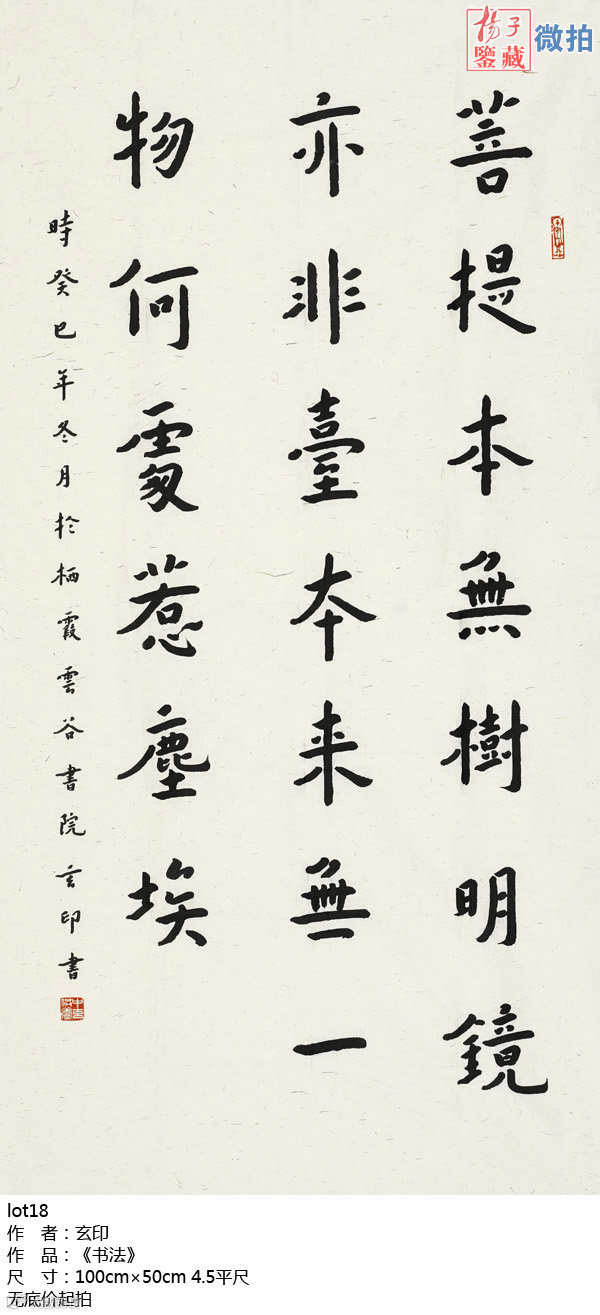 杨子
鑒藏
微拍
菩提本無樹明鏡
亦非臺本来無一
物何處惹塵埃
時癸巳年冬月於栖霞雲谷書院玄印書
lot18
作 者：玄印
作 品：《书法》
尺 寸：100cm×50cm 4.5平尺
无底价起拍